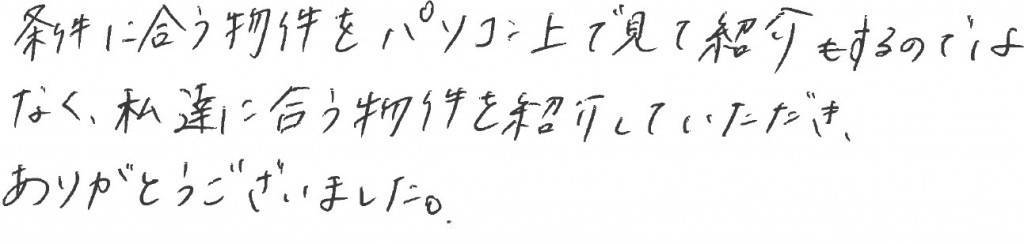 条件に合う物件をパソコン上で見て紹介もするのでは
なく、私達に合う物件を紹介していただき、
ありがとうございました。